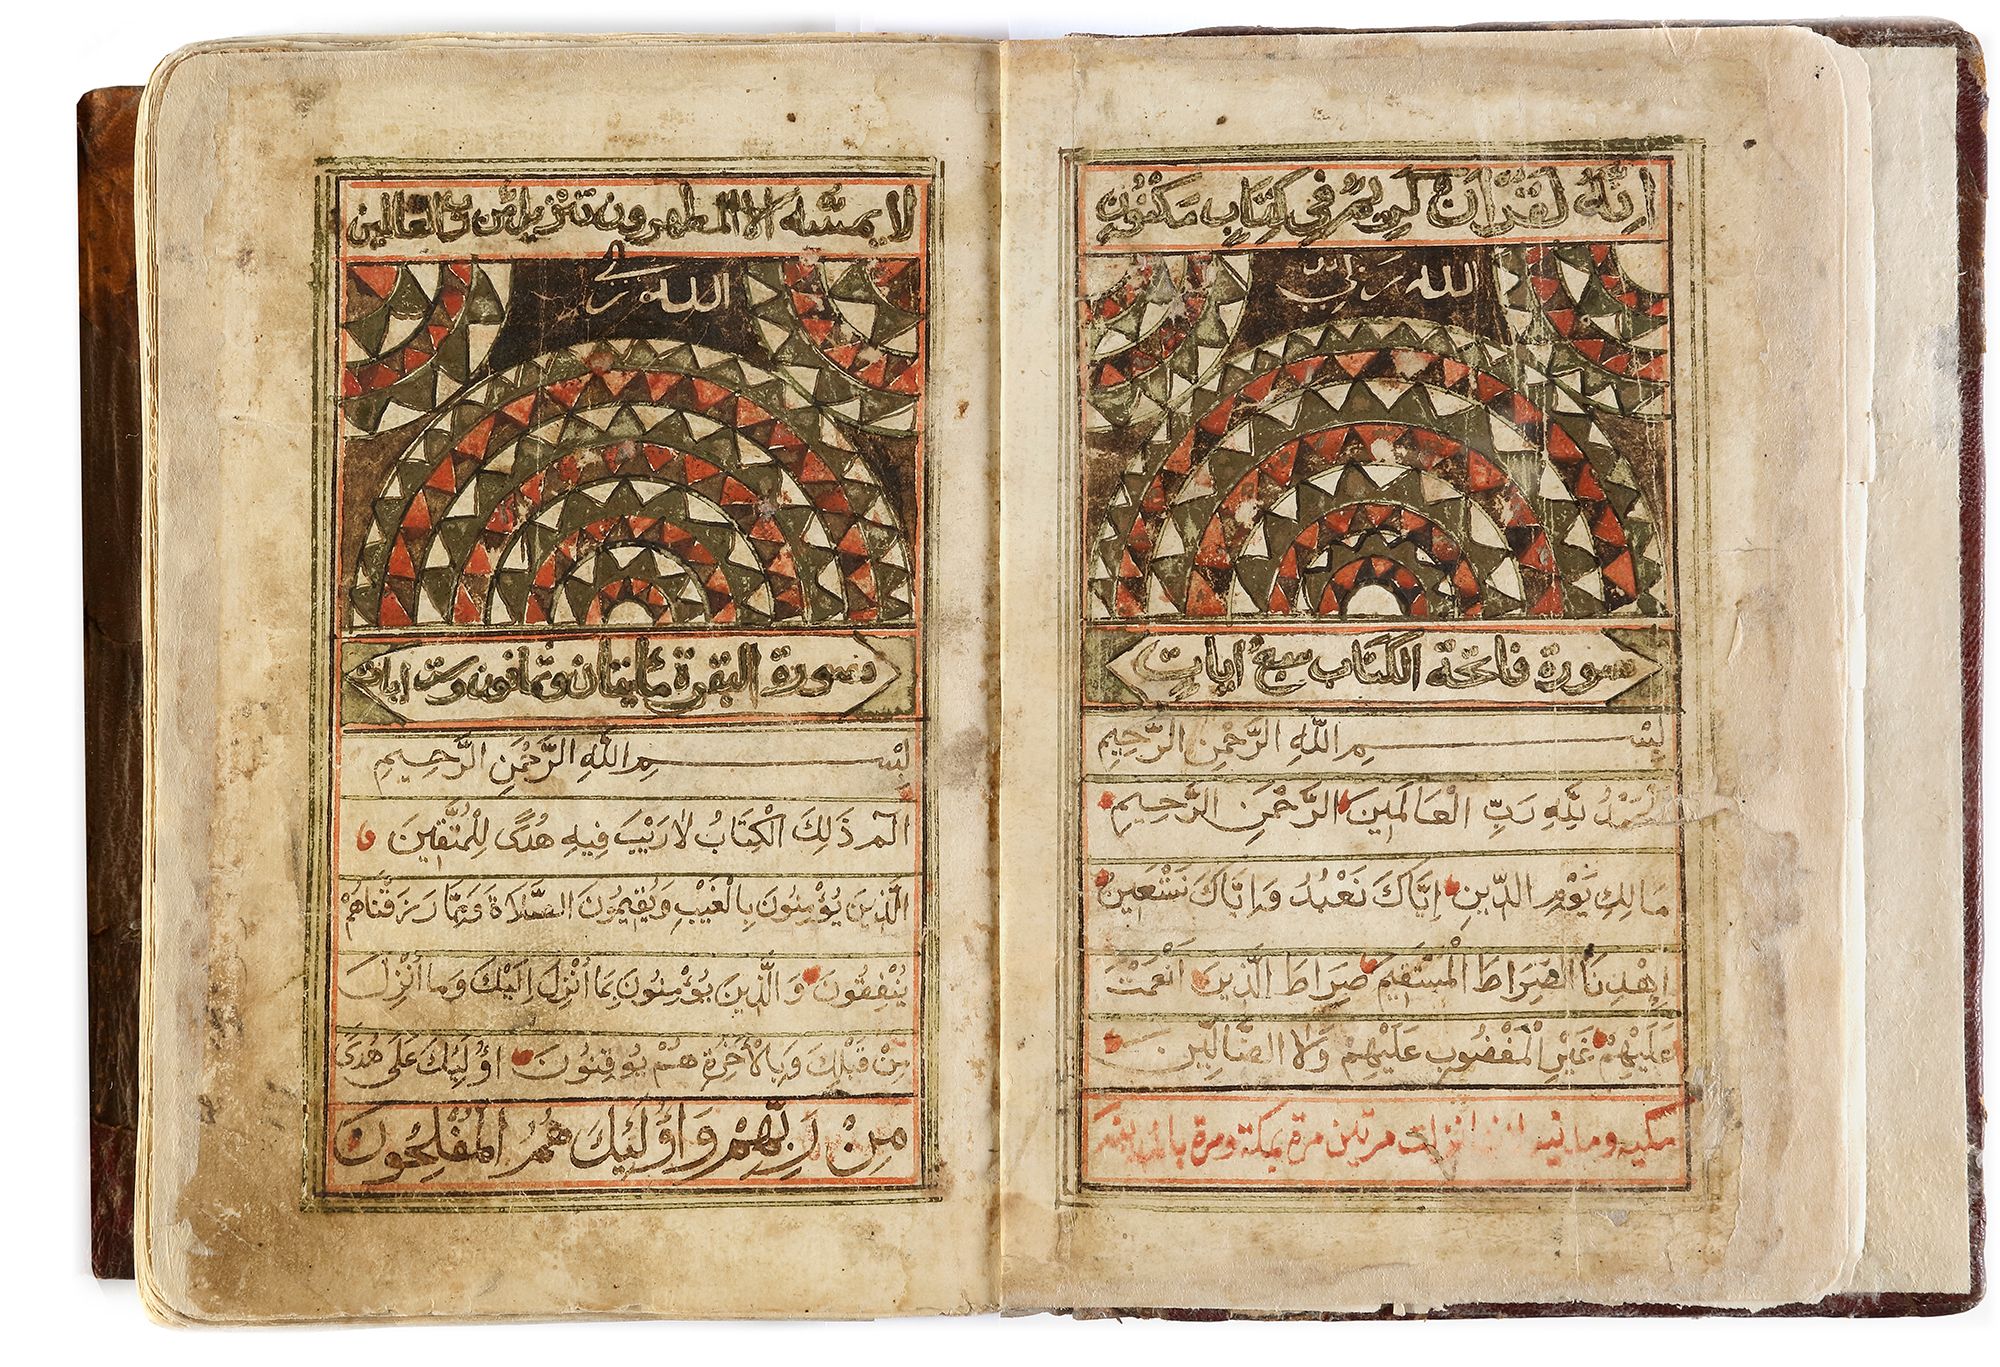 إنه لقرآن كريم في كتاب مكنون
الله ربي
سورة فاتحة الكتاب سبع ايات
بِسْمِ اللّٰهِ الرَّحْمٰنِ الرَّحِيمِ
الحَمْدُ لِلّٰهِ رَبِّ الْعَالَمِينَ الرَّحْمٰنِ الرَّحِيمِ
مَالِكِ يَوْمِ الدِّينِ اِيَّاكَ نَعْبُدُ وَاِيَّاكَ نَسْتَعِينُ
اِهْدِنَا الصِّرَاطَ الْمُسْتَقِيمَ صِرَاطَ الَّذِينَ اَنْعَمْتَ
عَلَيْهِمْ غَيْرِ الْمَغْضُوبِ عَلَيْهِمْ وَلَا الضَّالِّينَ
مكية ومدنية لانها انزلت مرتين مرة بمكة ومرة
لا يمسّه الا المطهرون تنزيل من رب العالمين
الله ربي
سورة البقرة مائيتان وثمانون وست ايات
بِسْمِ اللّٰهِ الرَّحْمٰنِ الرَّحِيمِ
الٓمٓ ذَلِكَ الْكِتَابُ لَا رَيْبَ فِيهِ هُدًى لِلْمُتَّقِينَ
الَّذِينَ يُؤْمِنُونَ بِالْغَيْبِ وَيُقِيمُونَ الصَّلَاةَ وَمِمَّا رَزَقْنَاهُمْ
يُنْفِقُونَ وَالَّذِينَ يُؤْمِنُونَ بِمَا اُنْزِلَ اِلَيْكَ وَمَا اُنْزِلَ
مِنْ قَبْلِكَ وَبِالْاٰخِرَةِ هُمْ يُوقِنُونَ اُولٰئِكَ عَلَى هُدًى
مِنْ رَبِّهِمْ وَاُولٰئِكَ هُمُ الْمُفْلِحُونَ